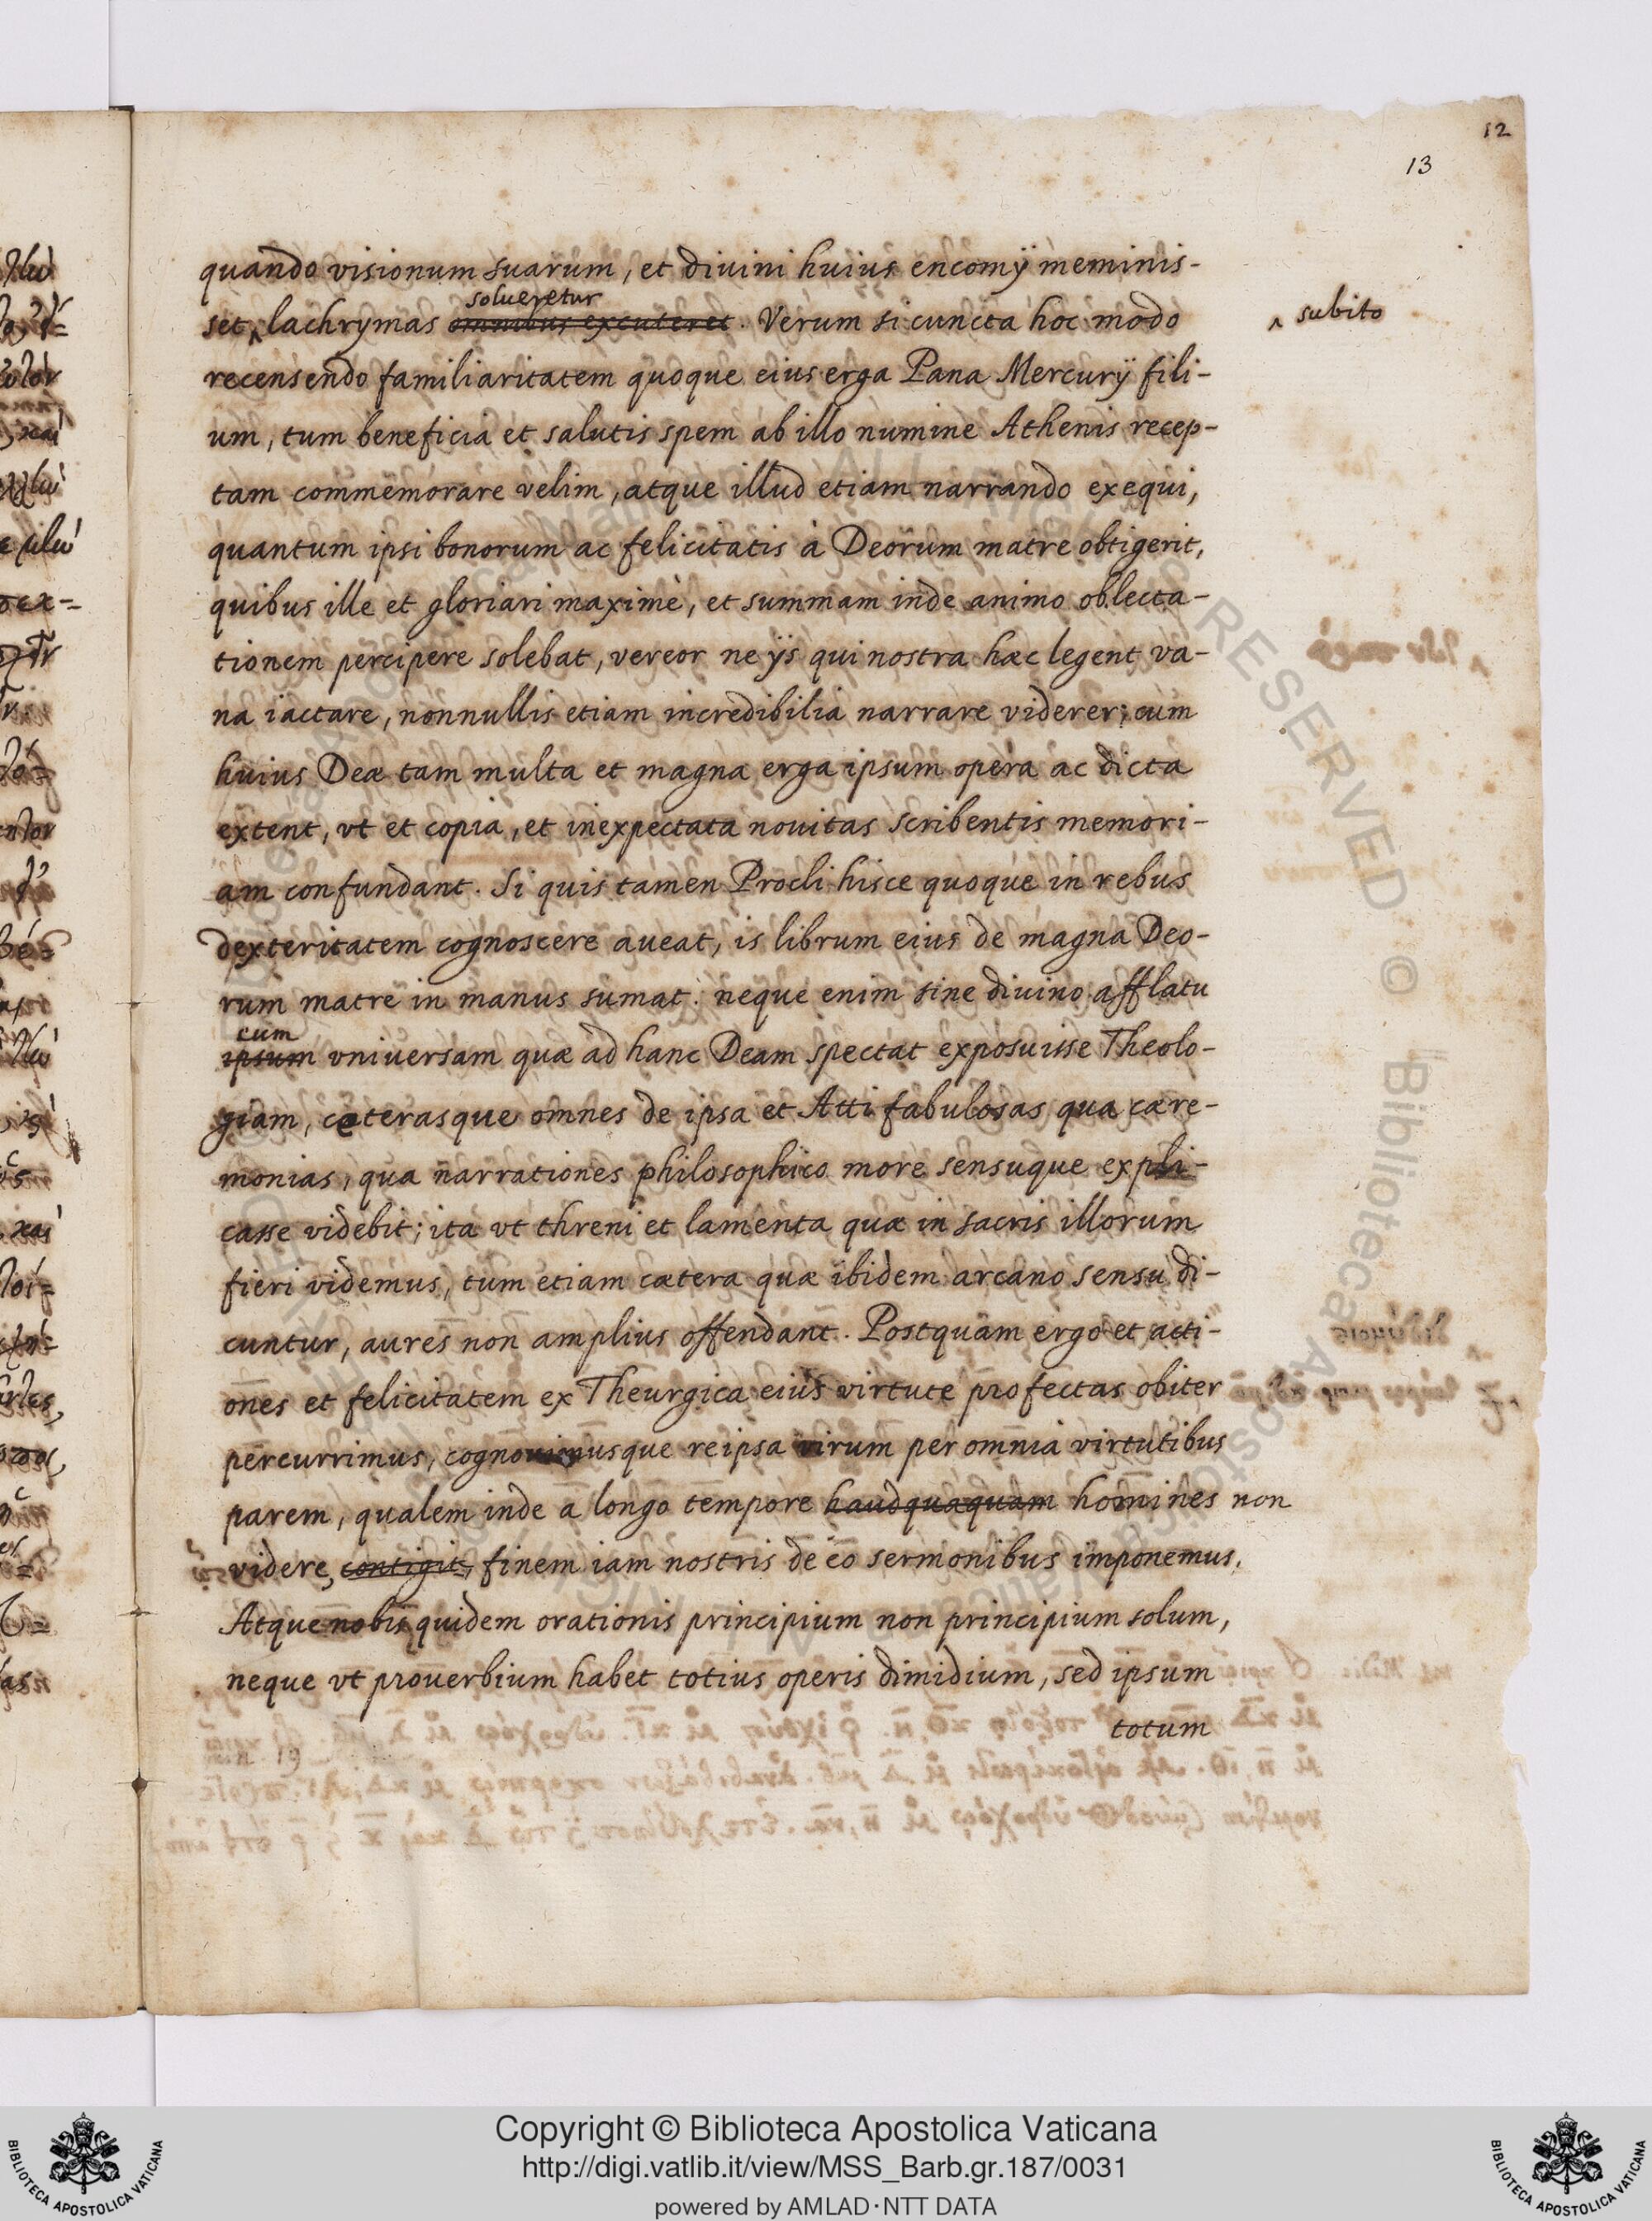 12
13
quando visionum suarum, et divini huius encomÿ meminis-
solueretur
set ‸ lachrymas omnibus excuteret. Verum si cuncta hoc modo
‸ subito
recensendo familiaritatem quoque eius erga Pana Mercurÿ fili-
um, tum beneficia et salutis spem ab illo numine Athenis recep-
tam commemorare velim, atque illud etiam narrando exequi,
quantum ipsi bonorum ac felicitatis à Deorum matre obtigerit,
quibus ille et gloriari maximè, et summam inde animo oblecta-
tionem percipere solebat, vereor ne ÿs qui nostra hæc legent va-
na iactare, nonnullis etiam incredibilia narrare viderer; cum
huius Deæ tam multa et magna erga ipsum opera ac dicta
extent, vt et copia, et inexpectata nouitas scribentis memori-
am confundant. Si quis tamen Procli hisce quoque in rebus
dexteritatem cognoscere aueat, is librum eius de magna Deo-
rum matre in manus sumat. neque enim sine diuino afflatu
eum
ipsum vniuersam quæ ad hanc Deam spectat exposuisse Theolo-
giam, cæterasque omnes de ipsa et Atti fabulosas qua cære-
monias, qua narrationes philosophico more sensuque expli-
casse videbit; ita vt threni et lamenta quæ in sacris illorum
fieri videmus, tum etiam cætera quæ ibidem arcano sensu di-
cuntur, aures non amplius offendant. Postquam ergo et acti-
ones et felicitatem ex Theurgica eius virtute profectas obiter
percurrimus, cognouimusque reipsa virum per omnia virtutibus
parem, qualem inde a longo tempore haudquaquam homines non
videre, contigit, finem iam nostris de eo sermonibus imponemus.
Atque nobis quidem orationis principium non principium solum,
neque vt prouerbium habet totius operis dimidium, sed ipsum
totum
Copyright © Biblioteca Apostolica Vaticana
http://digi.vatlib.it/view/MSS_Barb.gr.187/0031
powered by AMLAD·NTT DATA
BIBLIOTECA APOSTOLICA VATICANA
BIBLIOTECA APOSTOLICA VATICANA